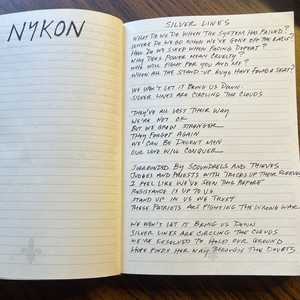 NYKON
SILVER LINES
WHAT DO WE DO WHEN THE SYSTEM HAS FAILED?
WHERE DO WE GO WHEN WE'VE GONE OFF THE RAILS?
HOW DO WE SUCCEED WHEN FACING DEFEAT?
WHY DOES POWER MEAN CRUELTY?
WHO WILL FIGHT FOR YOU AND ME?
WHEN ALL THE STAND-UP GUYS HAVE FOUND A SEAT?
WE WON'T LET IT BRING US DOWN
SILVER LINES ARE CIRCLING THE CLOUDS
THEY'VE ALL LOST THEIR WAY
WE'RE NOT OK
BUT WE GROW STRONGER
THEY FORGET AGAIN
WE CAN BE DECENT MEN
OUR LOVE WILL CONQUER
SURROUNDED BY SCOUNDRELS AND THIEVES
JUDGES AND PRIESTS WITH TRICKS UP THEIR SLEEVES
I FEEL LIKE WE'VE SEEN THIS BEFORE
RESISTANCE IS UP TO US
STAND UP IN US WE TRUST
THESE PATRIOTS ARE FIGHTING THE WRONG WAR
WE WON'T LET IT BRING US DOWN
SILVER LINES ARE CIRCLING THE CLOUDS
WE'VE RESOLVED TO HOLD OUR GROUND
HOPE FINDS HER WAY THROUGH THE DOUBTS